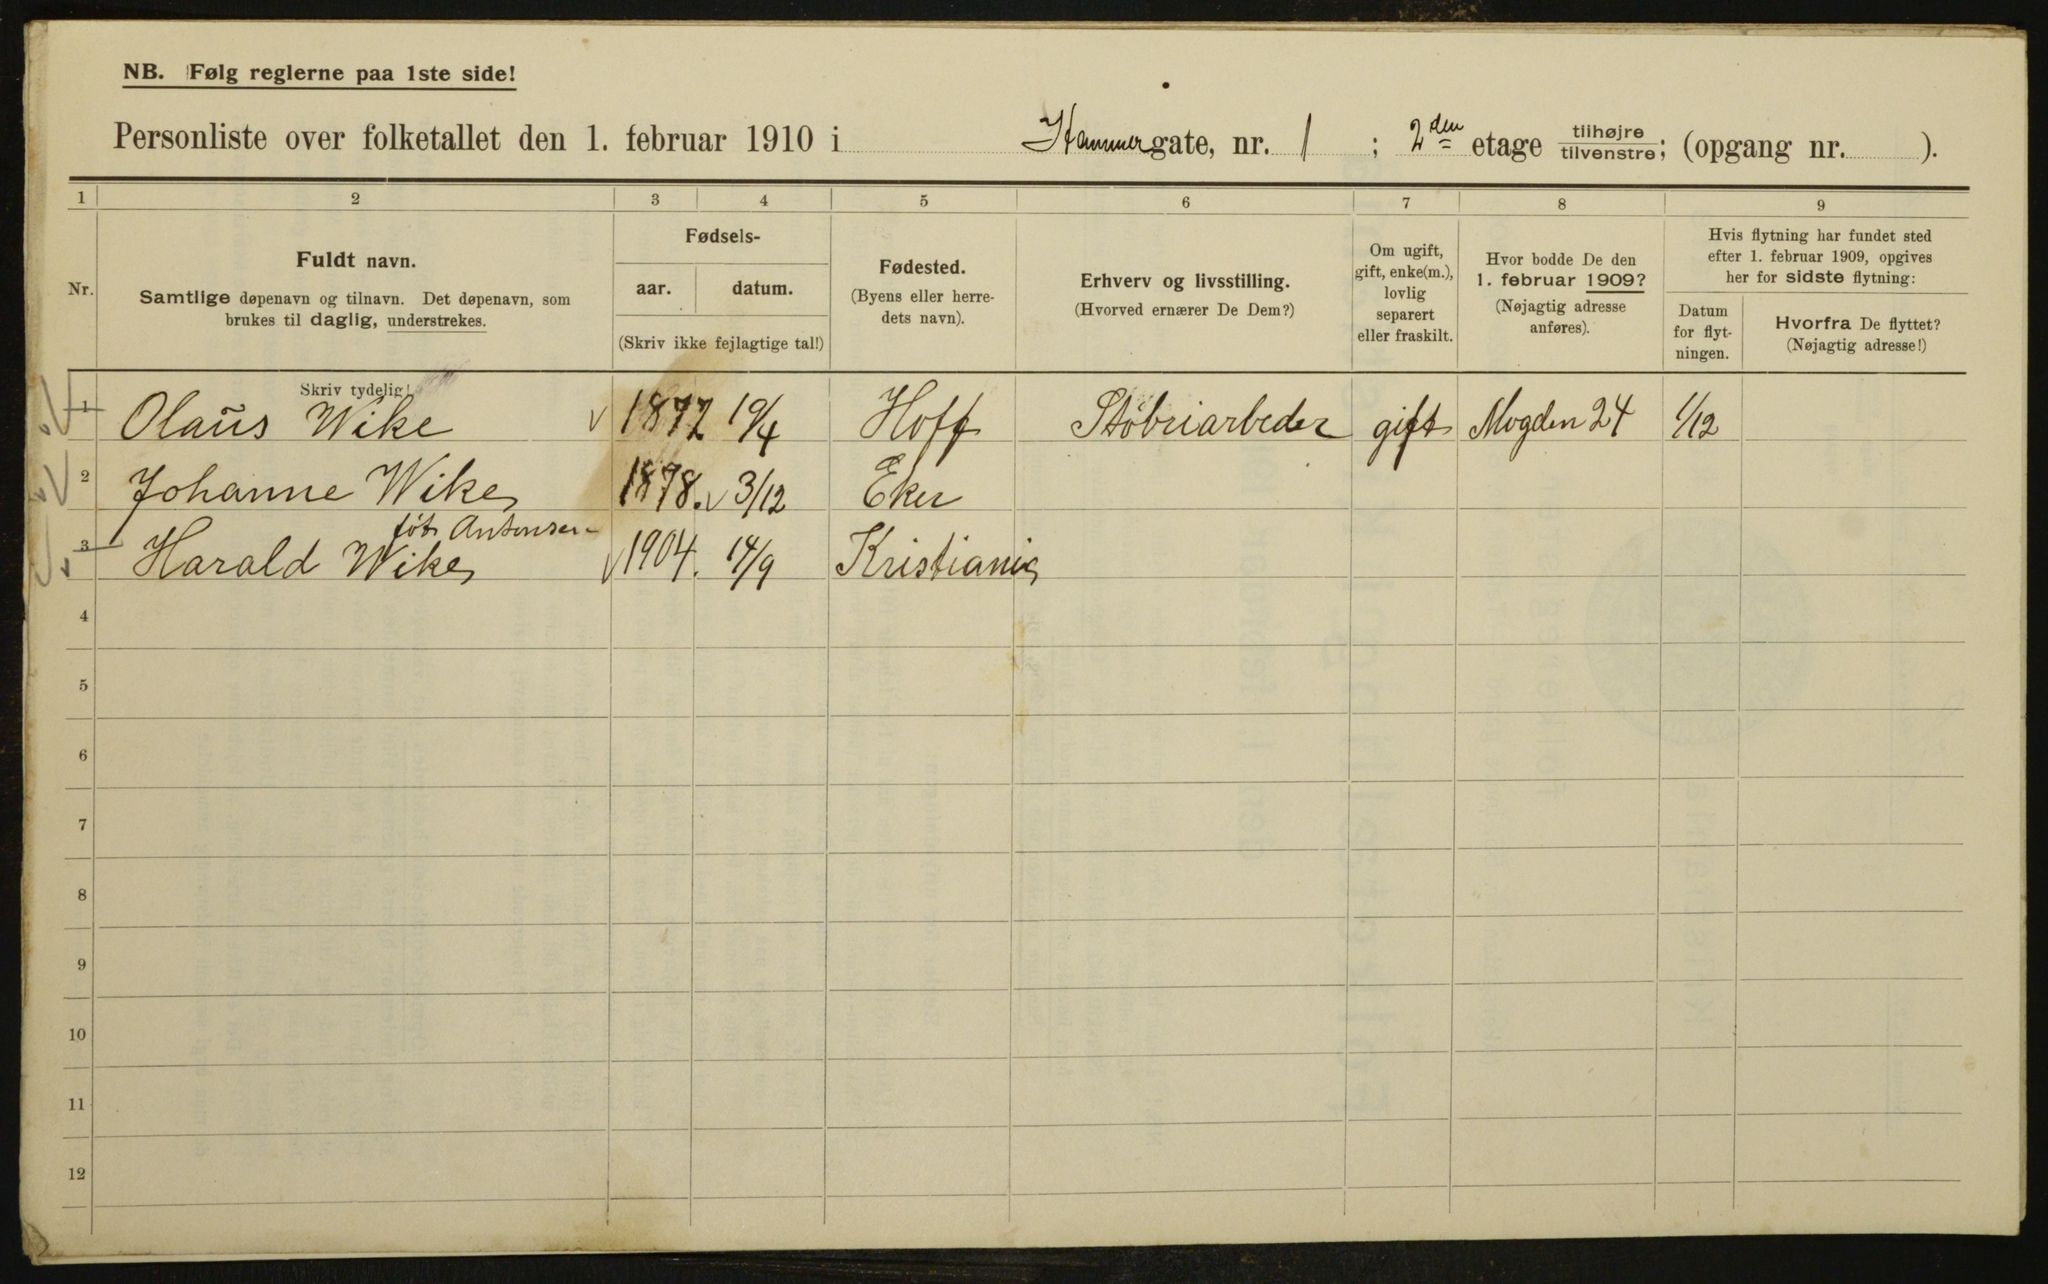 NB. Følg reglerne paa 1ste side!
Personliste over folketallet den 1. februar 1910 i Hammergate, nr. 1 ; 2den etage tilhøjre/tilvenstre; (opgang nr. ).
1 2 3 4 5 6 7 8 9
Nr.
Fuldt navn.
Samtlige døpenavn og tilnavn. Det døpenavn, som
brukes til daglig, understrekes.
Skriv tydelig!
Fødsels-
aar. datum.
(Skriv ikke fejlagtige tal!)
Fødested.
(Byens eller herre-
dets navn).
Erhverv og livsstilling.
(Hvorved ernærer De Dem?)
Om ugift,
gift, enke(m.),
lovlig
separert
eller fraskilt.
Hvor bodde De den
1. februar 1909?
(Nøjagtig adresse
anføres).
Hvis flytning har fundet sted
efter 1. februar 1909, opgives
her for sidste flytning:
Datum
for flyt-
ningen.
Hvorfra De flyttet?
(Nøjagtig adresse!)
1 Olaüs Wike 1877 19/4 Hoff Støberiarbeder gift Mogden 24 1/12
2 Johanne Wike 1878. 3/12 Eker
født Antonsen
3 Harald Wike 1904. 14/9 Kristiania
4
5
6
7
8
9
10
11
12